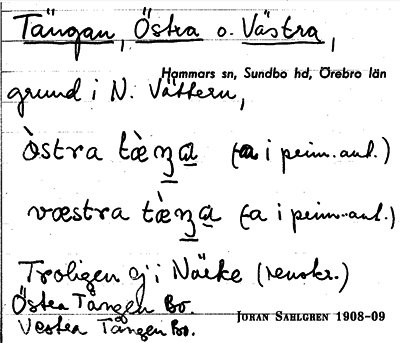 Tängan, Östra o. Västra,
Hammars sn, Sundbo hd, Örebro län
grund i N. Vättern,
òstra tæ̀ŋa (-a i peim. ant.)
væstra tæ̀ŋa (-a i peim. ant.)
Troligen ej i Närke (renskr.)
Östra Tången Bo.
Vestra Tången Bo.
JÖRAN SAHLGREN 1908-09